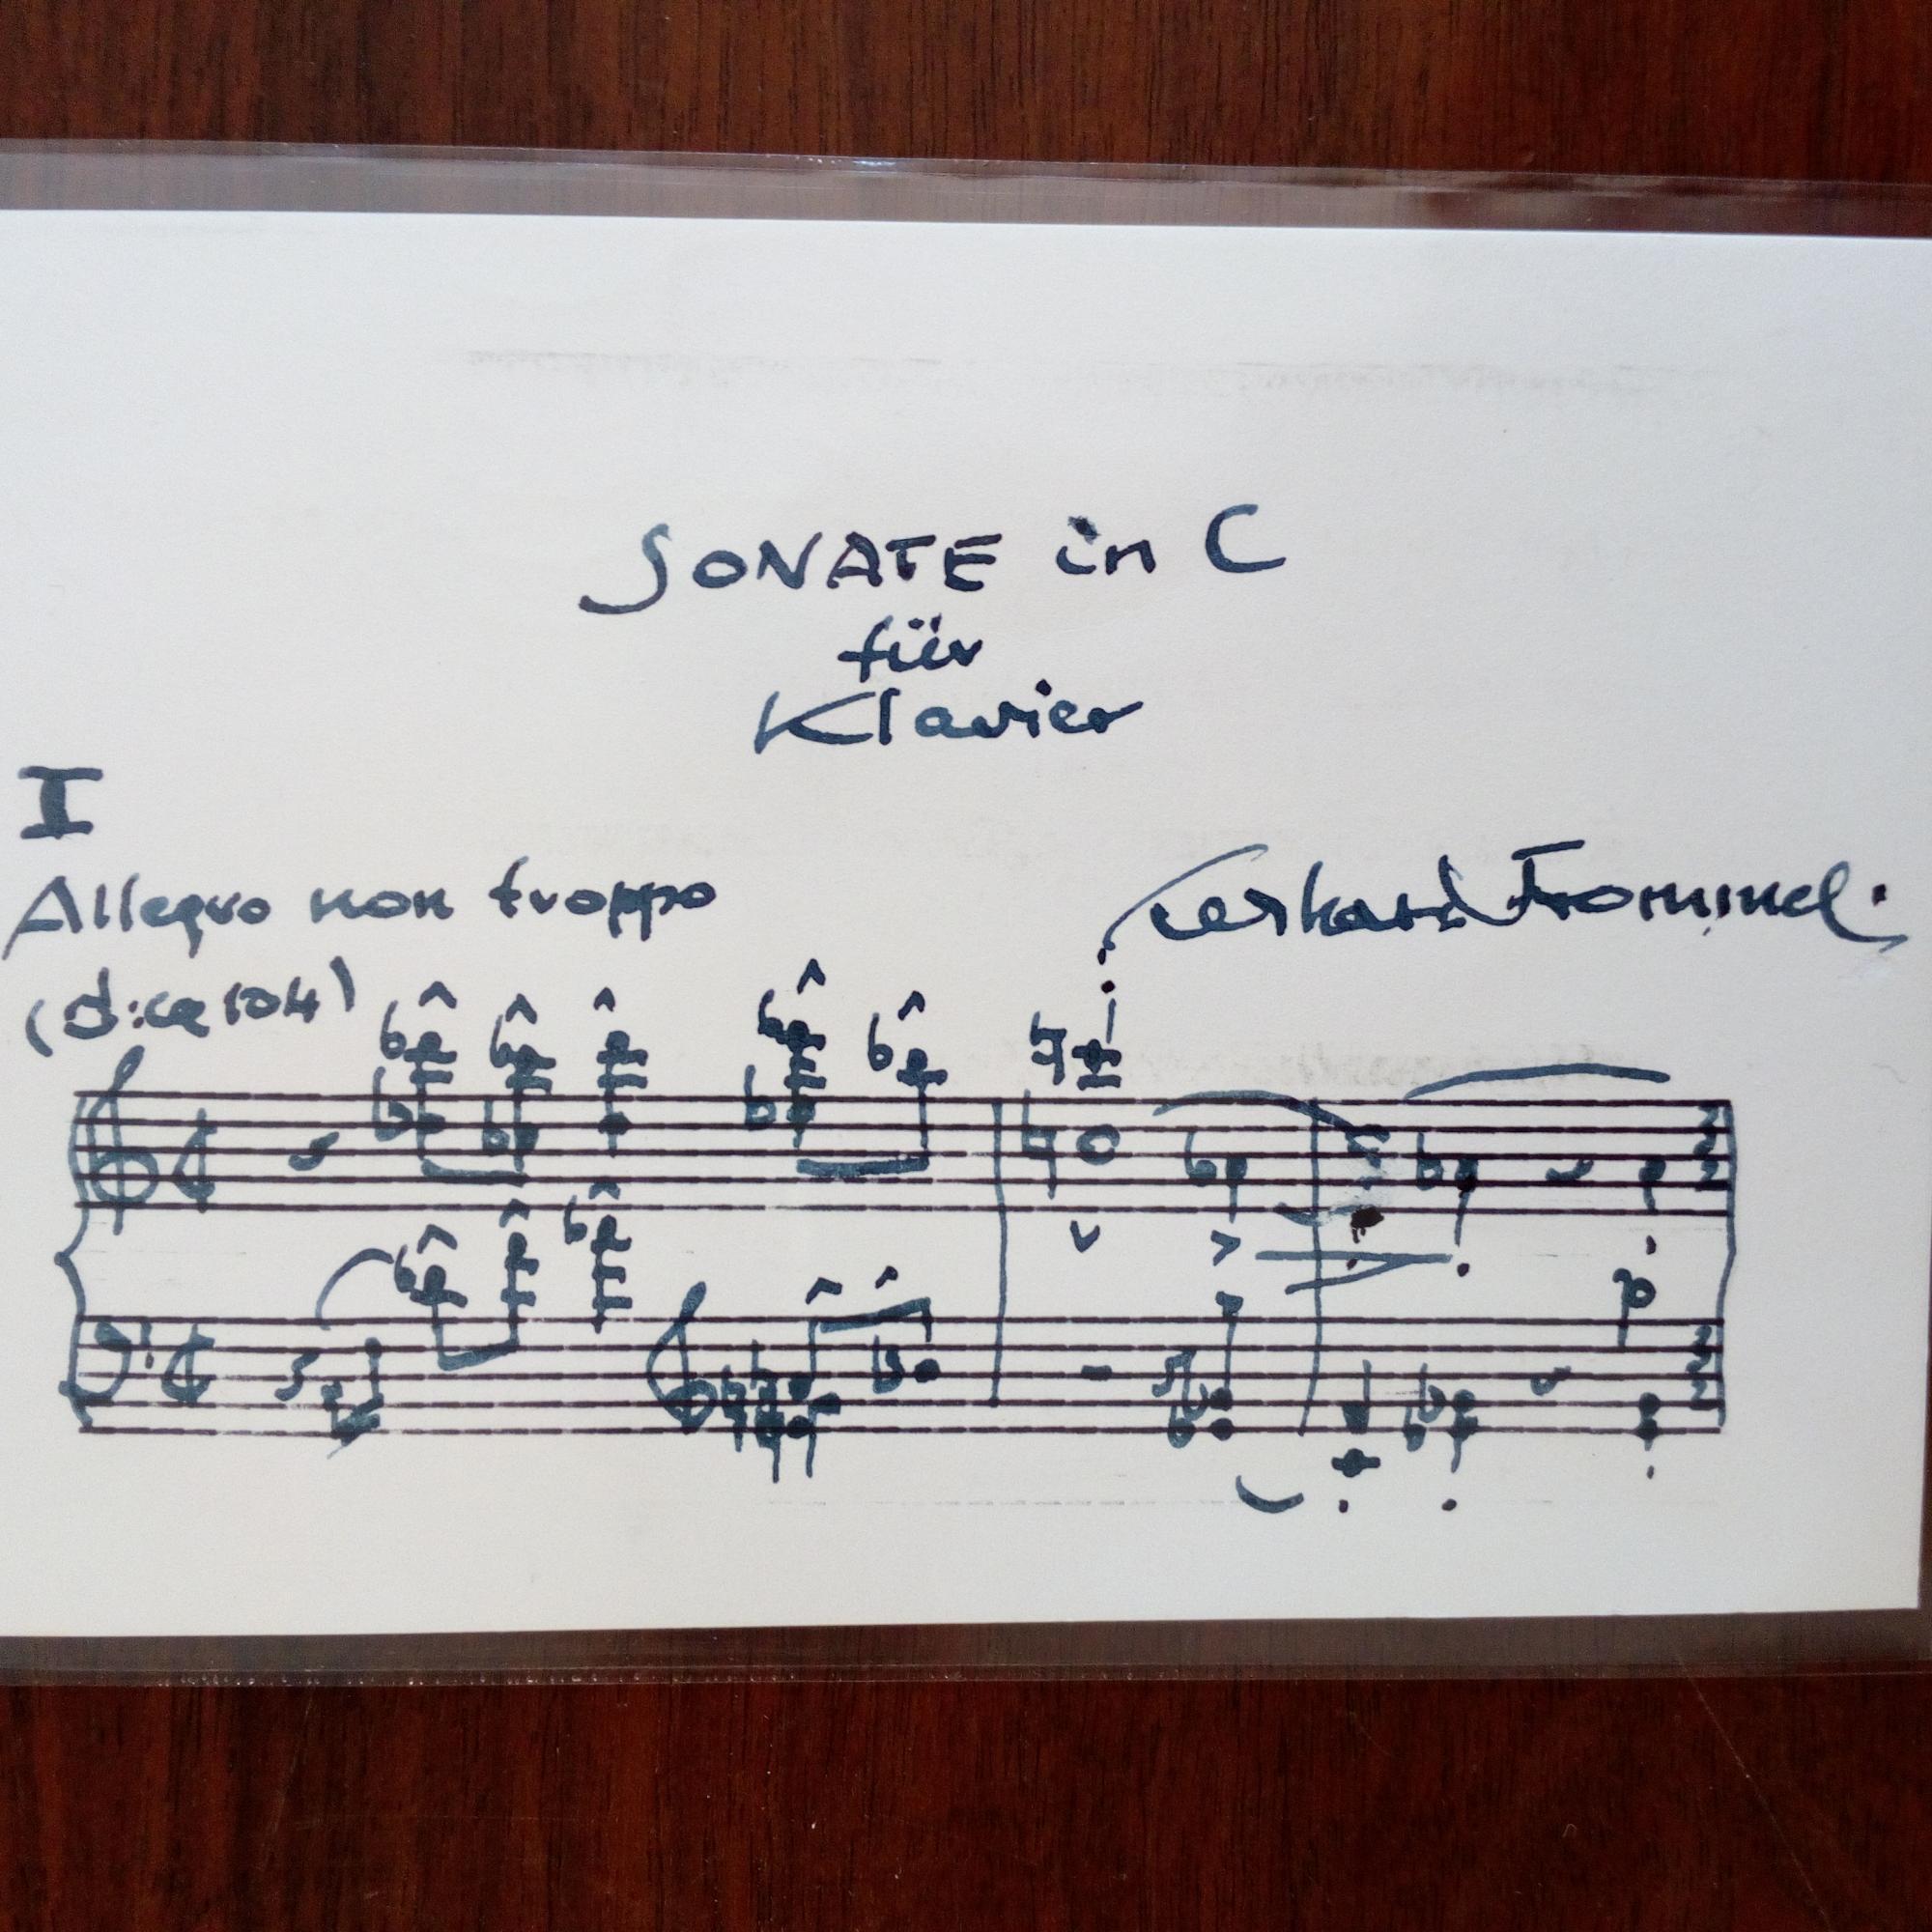 SONATE in C
für
Klavier
I
Allegro non troppo
Gerhard Frommel.
(d:ca 104)
p